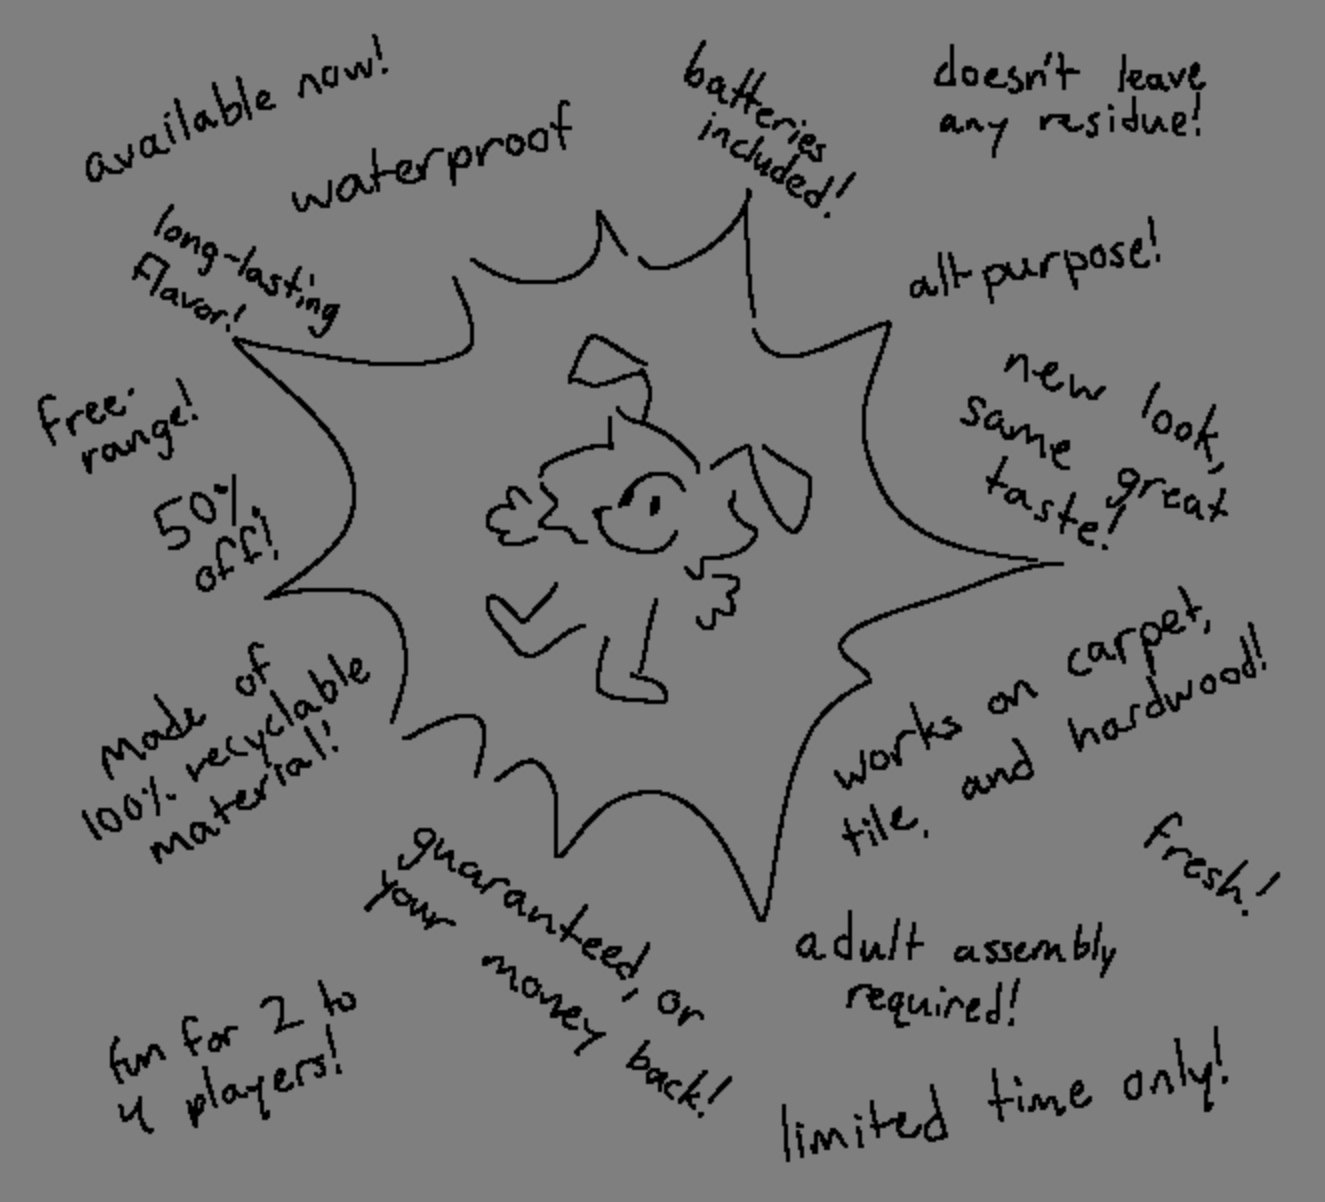 available now!
waterproof
batteries
included!
doesn't leave
any residue!
long-lasting
flavor!
all-purpose!
free-
range!
new look,
same great
taste!
50%
off!
works on carpet,
tile, and hardwood!
made of
100% recyclable
material!
fresh!
guaranteed, or
your money back!
adult assembly
required!
fun for 2 to
4 players!
limited time only!